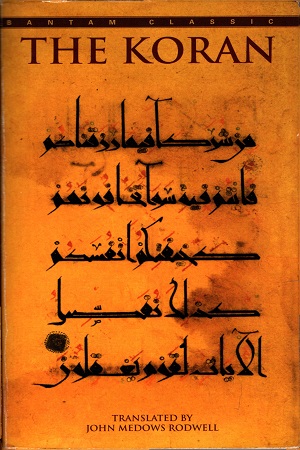 BANTAM CLASSIC
THE KORAN
من شركاء فيما رزقناكم
فأنتم فيه سواء تخافونهم
كخيفتكم أنفسكم
كذلك نفصل
الآيات لقوم يعقلون
TRANSLATED BY
JOHN MEDOWS RODWELL